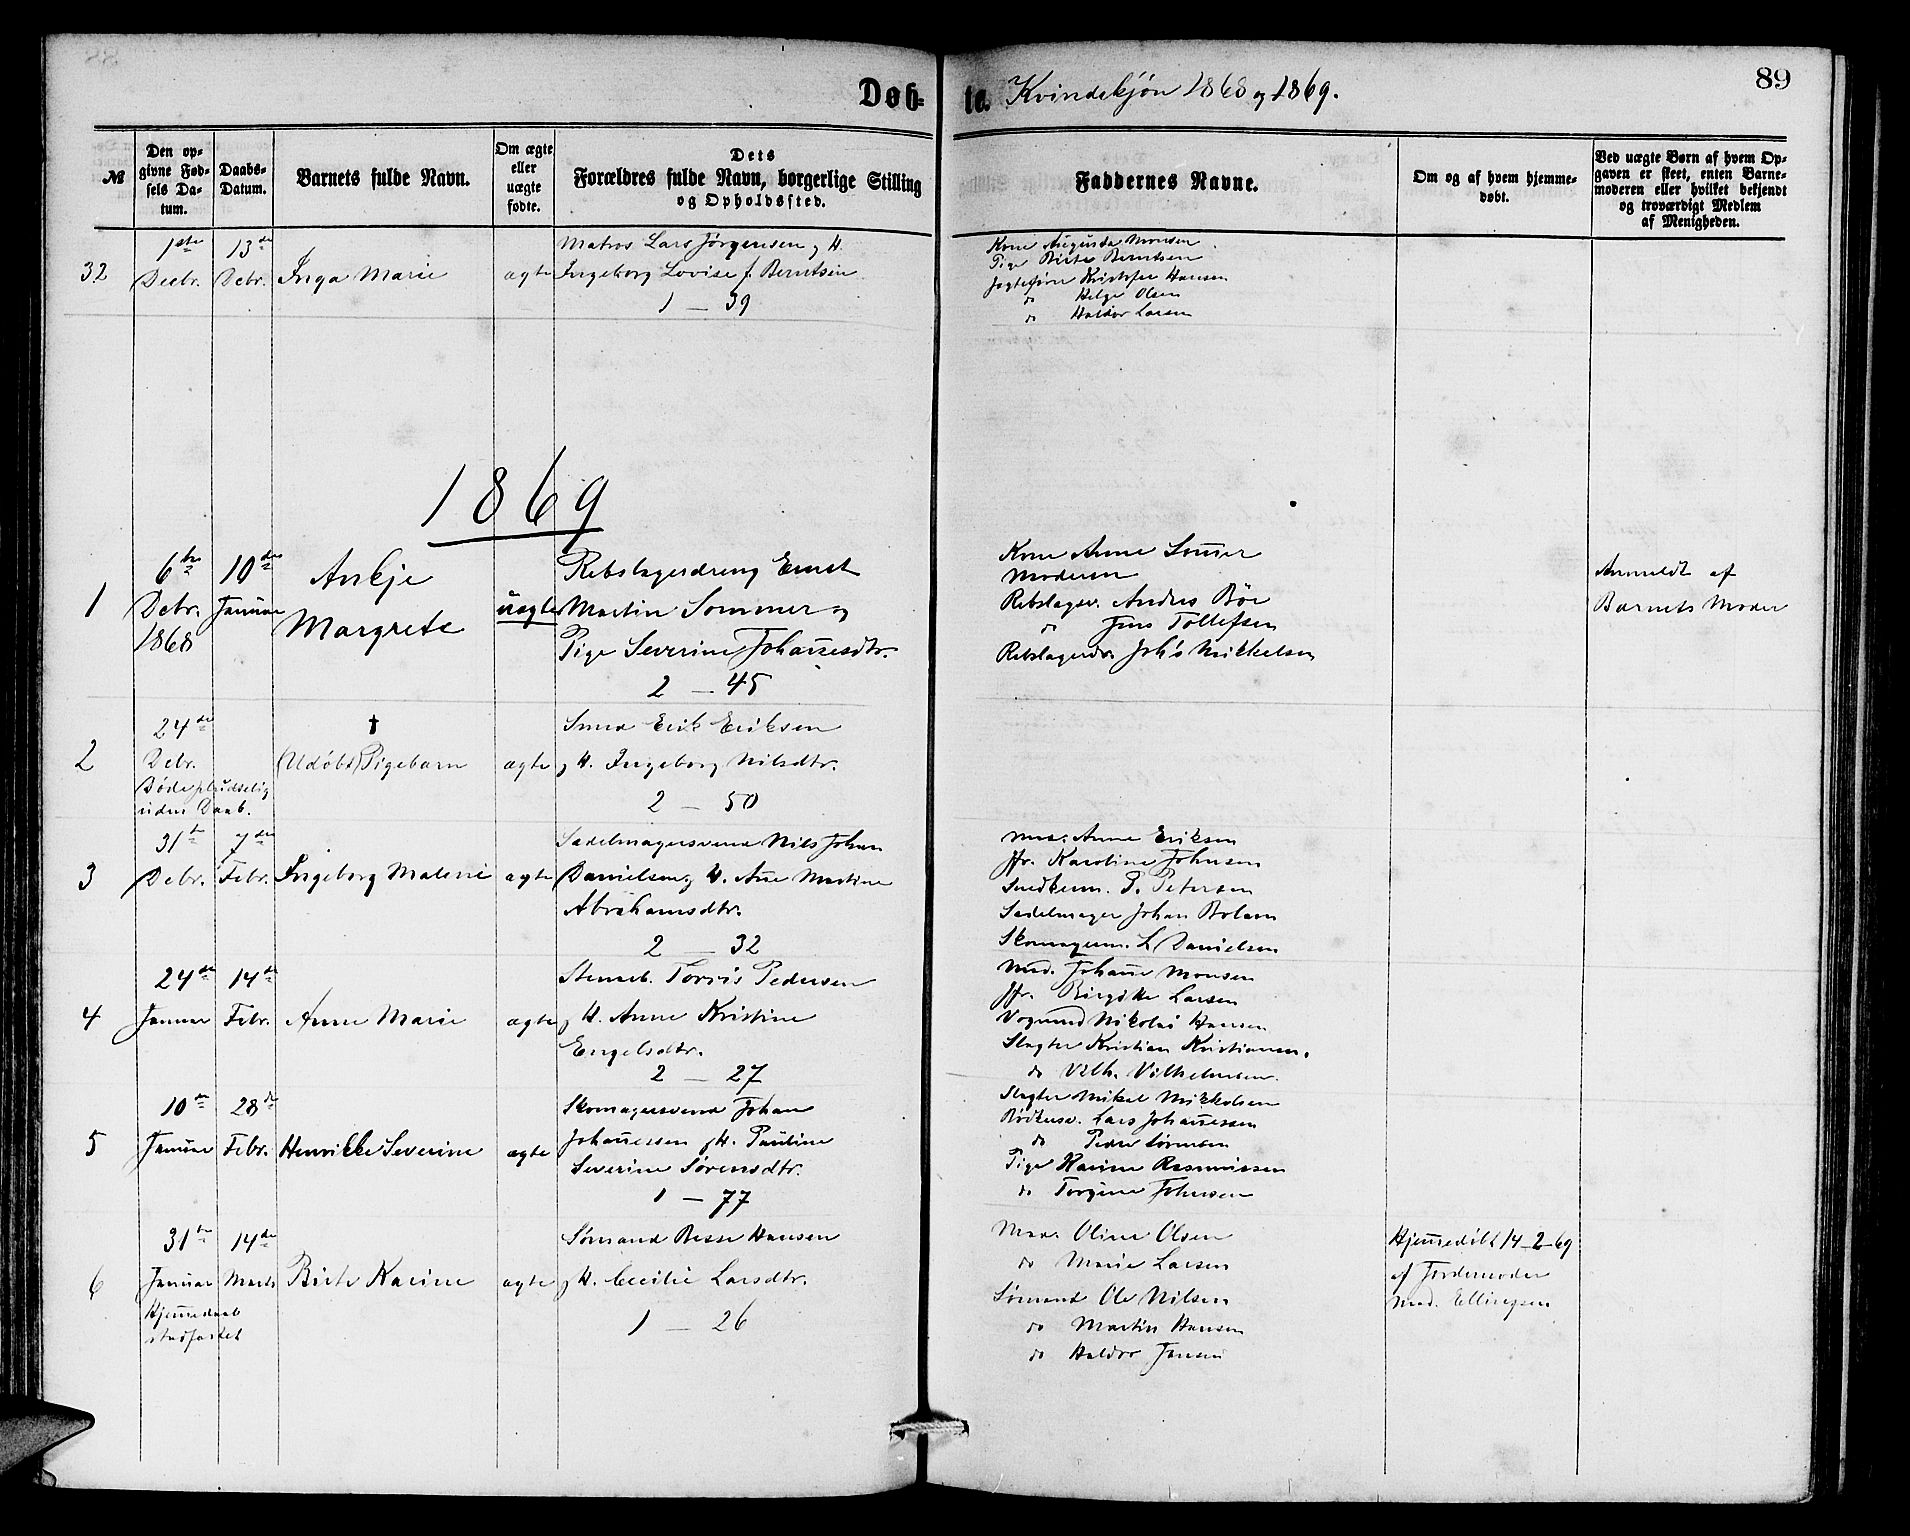 Døb-
te. Kvindekjøn 1868 og 1869.
89
№
Den op-
givne Fød-
sels Da-
tum.
Daabs-
Datum.
Barnets fulde Navn.
Om ægte
eller
uægte
fødte.
Dets
Forældres fulde Navn, borgerlige Stilling
og Opholdssted.
Faddernes Navne.
Om og af hvem hjemme-
døbt.
Ved uægte Børn af hvem Op-
gaven er skeet, enten Barne-
moderen eller hvilket bekjendt
og troværdigt Medlem
af Menigheden.
32
1ste
Decbr.
13de
Debr.
Inga Marie
ægte
Matros Lars Jørgensen og H.
Ingeborg Lovise f. Berntsen
1 — 39
Kone Augusta Monsen
Pige Birte Berntsen
Jagtefører Kristofer Hansen
do Helge Olsen
do Haldor Larsen
1869
1
6te
Debr.
1868
10de
Januar
Ankje
Margrete
uægte
Rebslagerdreng Ernst
Martin Sommer og
Pige Severine Johannesdtr.
2 — 45
Kone Anne Sommer
Moderen
Rebslagersv. Andres Böe
do Jens Tollefsen
Rebslagerdr. Joh's Mikkelsen
Anmeldt af
Barnets Moder
2
24de
Debr.
Döde pludselig
uden Daab.
†
(Udöbt) Pigebarn
ægte
Smed Erik Eriksen
og H. Ingeborg Nilsdtr.
2 — 50
3
31te
Debr.
7de
Febr.
Ingeborg Malene
ægte
Sadelmagersvend Nils Johan
Danielsen og H. Ane Martine
Abrahamsdtr.
2 — 32
Mad. Anne Eriksen
Jfr. Karoline Johnsen
Snedkerm. P. Petersen
Sadelmager Johan Bolsen
Skomagerm. L Danielsen
4
24de
Januar
14de
Febr.
Anne Marie
ægte
Stenarb. Torris Pedersen
og H. Anne Kristine
Engelsdtr.
2 — 27
Mad. Johanne Monsen
Jfr. Birgitte Larsen
Vognmd Nikolai Hansen
Slagter Kristian Kristiansen.
do Vilh. Vilhelmsen.
5
10de
Januar
28de
Febr.
Henrikke Severine
ægte
Skomagersvend Johan
Johannessen og H. Pauline
Severine Sørensdtr.
1 — 77
Slagter Mikel Mikkelsen
Bödkersv. Lars Johannessen
do Peder Sörensen
Pige Karine Rasmussen
do Torgine Johnsen
6
31te
Januar
Hjemmedaab
stadfæstet
14de
Marts
Birte Karine
ægte
Sømand Besse Hansen
og H. Cecilie Larsdtr.
1 — 26
Mad. Oline Olsen
do Marie Larsen
Sömand Ole Nilsen
do Martin Hansen
do Haldor Jansen
Hjemmedöbt 14-2-69
af Jordemoder
Mad. Ellingsen